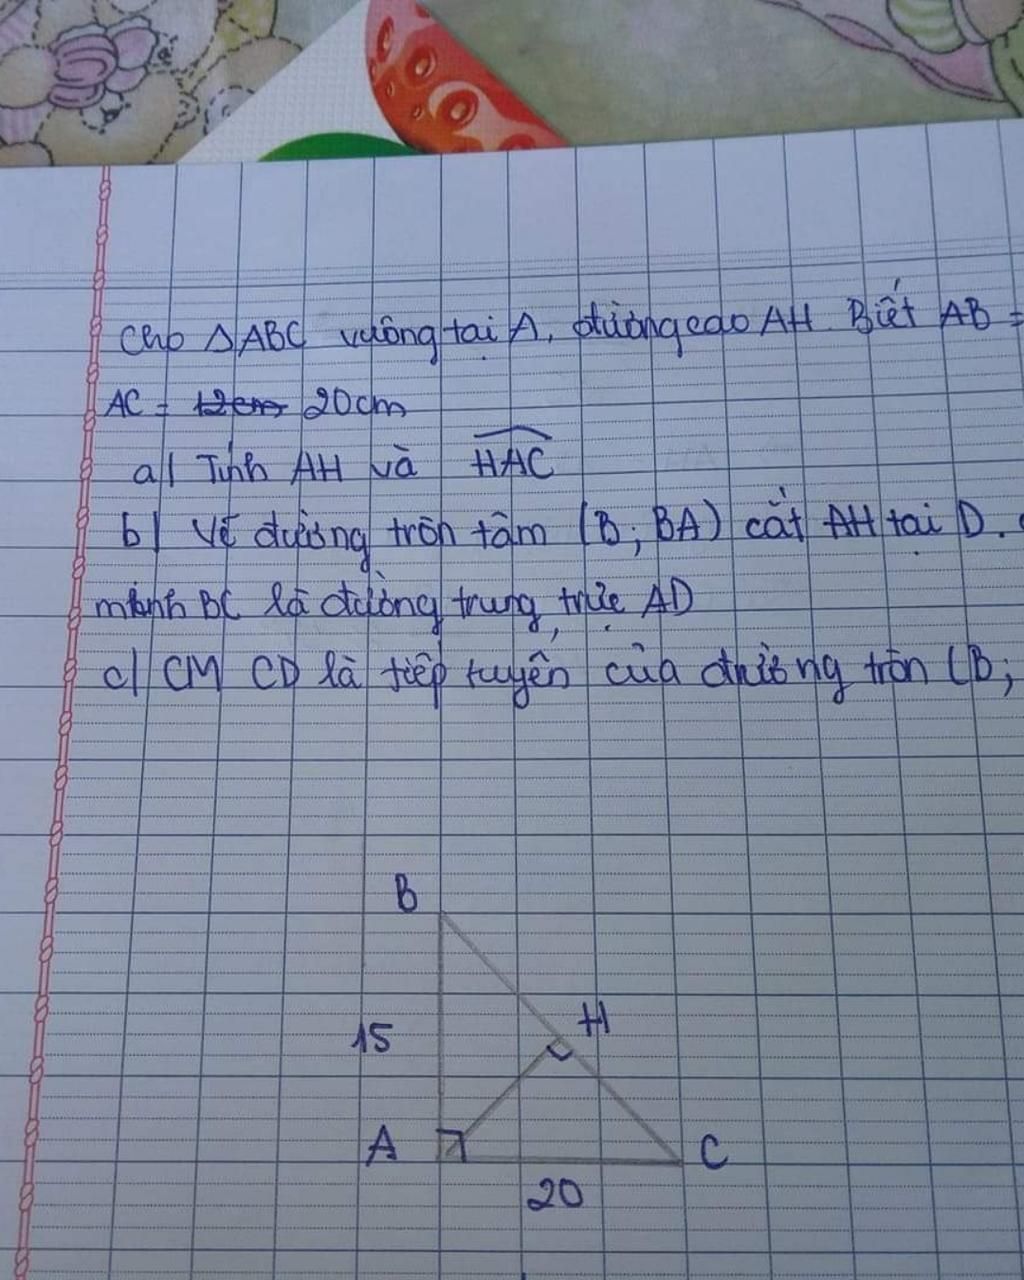 Cho △ABC vuông tại A, đường cao AH. Biết AB =
AC = 12cm 20cm
a/ Tính AH và HAC
b/ Vẽ đường tròn tâm (B; BA) cắt AH tại D.
minh BC là đường trung trực AD
c/ CM CD là tiếp tuyến của đường tròn (B;
B
H
15
A
C
20